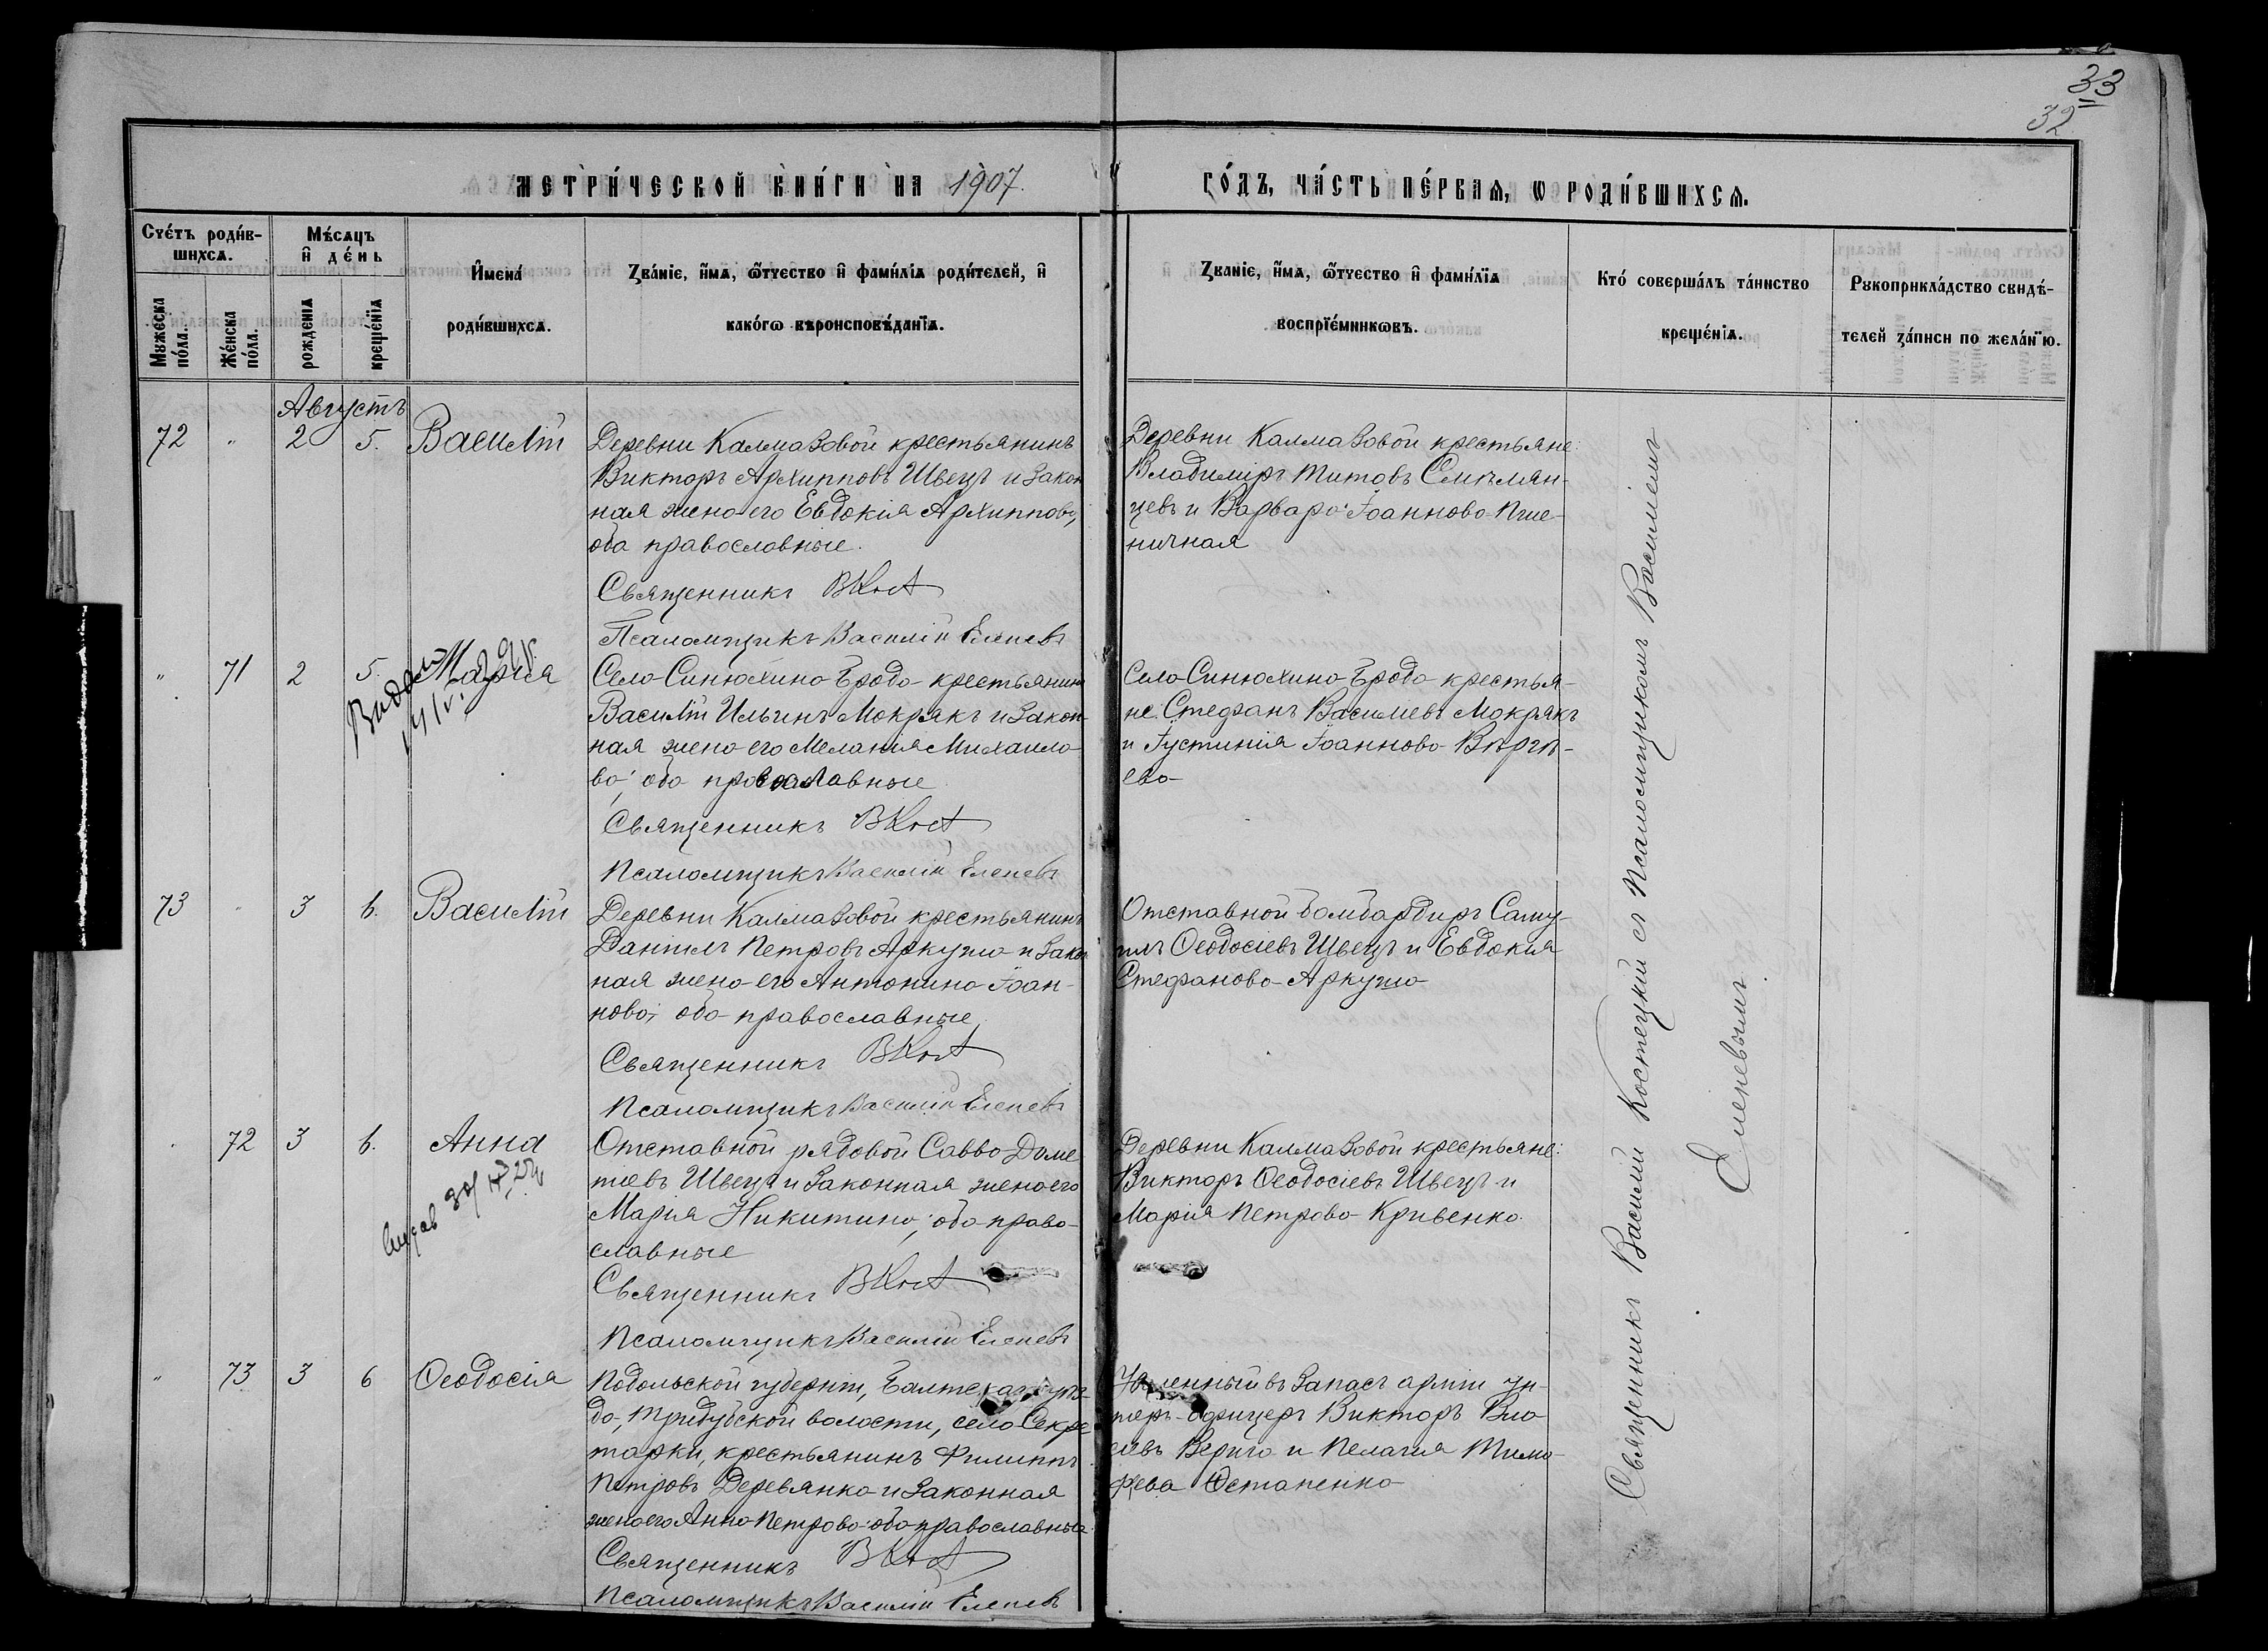 33
32
МЕТРИ́ЧЕСКОЙ КНИ́ГИ НА 1907. ГО́ДЪ, ЧА́СТЬ ПЕ́РВАѦ, Ѡ РОДИ́ВШИХСѦ.
Счéтъ роди́в-
шихсѧ.
Мꙋжеска по́ла.
Же́нска по́ла.
Мѣ́сѧцъ
и҆ де́нь
рожденїѧ
креще́нїѧ
И҆мена́
роди́вшихсѧ.
Зва́нїе, и҆́мѧ, ѻ҆́тчество и҆ фами́лїѧ роди́телей, и҆
како́гѡ вѣроисповѣ́данїѧ.
Зва́нїе, и҆́мѧ, ѻ҆́тчество и҆ фами́лїѧ
воспрїе́мникѡвъ.
Кто́ соверша́лъ та́инство
креще́нїѧ.
Рꙋкоприкла́дство свидѣ́-
телей за́писи по жела́нїю.
Августъ
72 " 2 5. Василій
Деревни Калмазовой крестьянинъ
Викторъ Архипповъ Швецъ и закон
ная жена его Евдокія Архиппова,
оба православные.
Священникъ ВКост
Псаломщикъ Василій Еленевъ
Деревни Калмазовой крестьяне:
Владиміръ Титовъ Смѣлян-
цевъ и Варвара Іоаннова Пше-
ничная
" 71 2 5. Марія
Села Синюхина Брода крестьянинъ
Василій Ильинъ Мокрякъ и закон-
ная жена его Мелания Михаило-
ва, оба православные
Священникъ ВКост
Псаломщикъ Василій Еленевъ
Села Синюхина Брода крестья-
не: Стефанъ Василиевъ Мокрякъ
и Іустинія Іоаннова
ева
73 " 3 6. Василій
Деревни Калмазовой крестьянинъ
Даніилъ Петровъ Аркуша и закон
ная жена его Антонина Іоан-
нова, оба православные,
Священникъ ВКост
Псаломщикъ Василій Еленевъ
Отставной бомбардиръ Саму-
илъ Ѳеодосіевъ Швецъ и Евдокія
Стефанова Аркуша
" 72 3 6. Анна
Отставной рядовой Савва Доме
тіевъ Швецъ и законная жена его
Марія Никитина, оба право-
славные
Священникъ ВКост
Псаломщикъ Василій Еленевъ
Деревни Калмазовой крестьяне:
Викторъ Ѳеодосіевъ Швецъ и
Марія Петрова Кривенко.
" 73 3 6 Ѳеодосія
Подольской губерніи, Балтскаго уѣз-
да, Тридубской волости, села Секре
тарки, крестьянинъ Филиппъ
Петровъ Деревянко и законная
жена его Анна Петрова оба православные.
Священникъ ВКост
Псаломщикъ Василій Еленевъ
въ запасъ арміи ун-
теръ-офицеръ Викторъ Вла
совъ Верига и Пелагия Тимо-
феева Остапенко
Священникъ Василій Костецкій съ Псаломщикомъ Василіемъ
Еленевымъ.